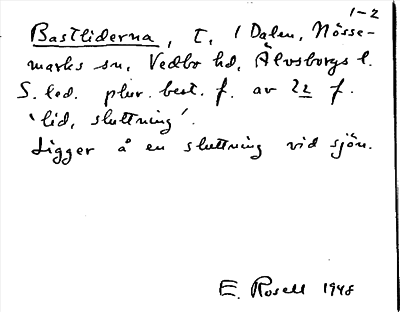 1-2
Bastliderna, t. i Dalen, Nösse-
marks sn, Vedbo hd, Älvsborgs l.
S. led. plur. best. f. av li f.
'lid, sluttning'.
Ligger å en sluttning vid sjön.
E. Rosell 1948